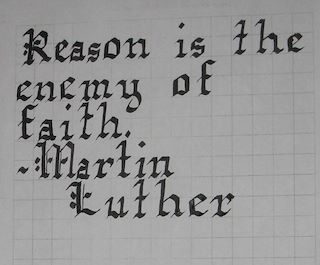 Reason is the
enemy of
faith.
-Martin
Luther